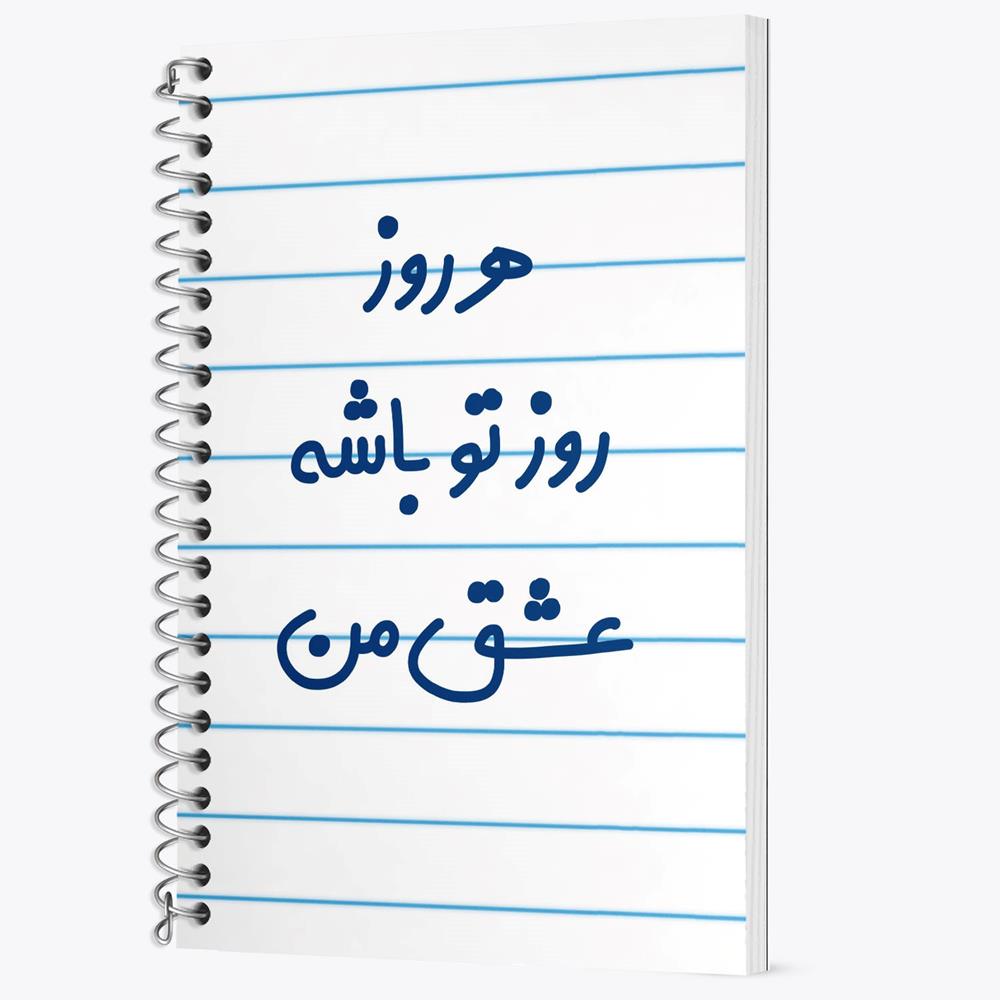 هر روز
روز تو باشه
عشق من